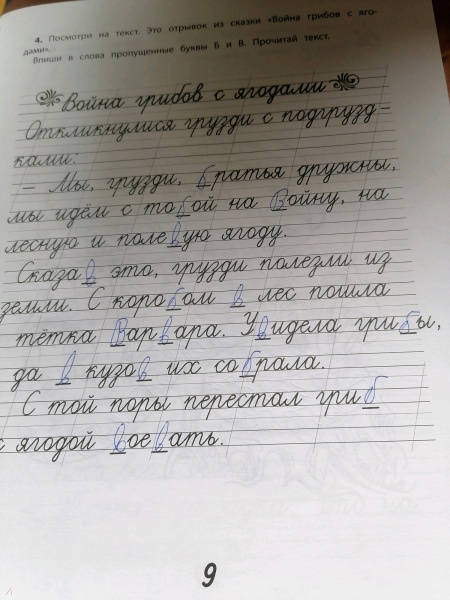 4. Посмотри на текст. Это отрывок из сказки «Война грибов с яго-
дами».
Впиши в слова пропущенные буквы Б и В. Прочитай текст.
Война грибов с ягодами
Откликнулися грузди с подгрузд-
ками.
– Мы, грузди, братья дружны,
мы идём с тобой на Войну, на
лесную и полевую ягоду.
Сказав это, грузди полезли из
земли. С коробом в лес пошла
тётка Варвара. Увидела грибы,
да в кузов их собрала.
С той поры перестал гриб
с ягодой воевать.
9